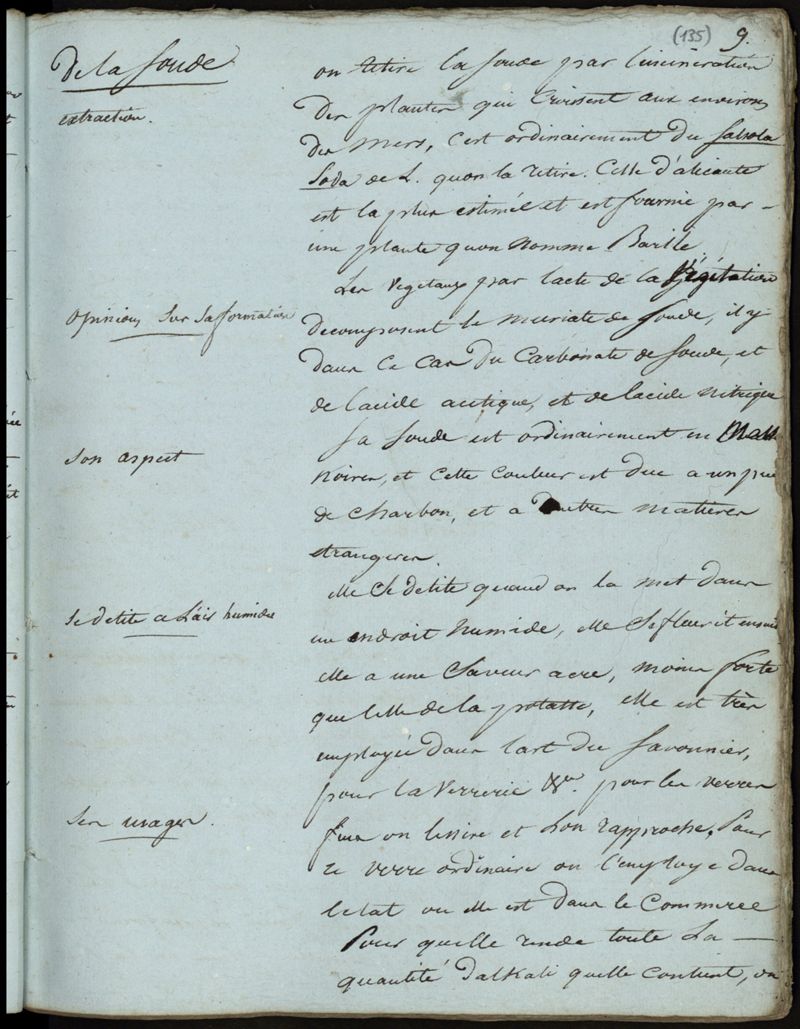 (135) 9.
De la Soude
on retire la soude par l'incineration
extraction.
des plantes qui Croissent aux environs
des Mers, c'est ordinairement du salsola
Soda de L. quon la retire. Celle d'alicante
est la plus estimée et est fournie par –
une plante quon nomme Barile
Les Vegetaux par lacte de la Végétation
Opinions sur sa formation
decomposent le muriate de soude, il y
dans ce cas du Carbonate de soude, et
de lacide acetique, et de lacide nitrique
Son aspect
La soude est ordinairement en Mass
noires, et cette couleur est due a un peu
de charbon, et a Dautres matieres
etrangeres.
Se delite a l'air humide
elle se delite quand on la met dans
un endroit humide, elle sefleurit ensuite
elle a une Saveur acre, moins forte
que celle de la potasse, elle est très
employée dans lart du savonnier,
Ses usages.
pour la Verrerie &ca. pour les verres
fins on lessive et lon rapproche, Pour
le verre ordinaire on l'employe dans
letat ou elle est dans le Commerce
Pour quelle rende toute la —
quantité dalkali quelle contient, on